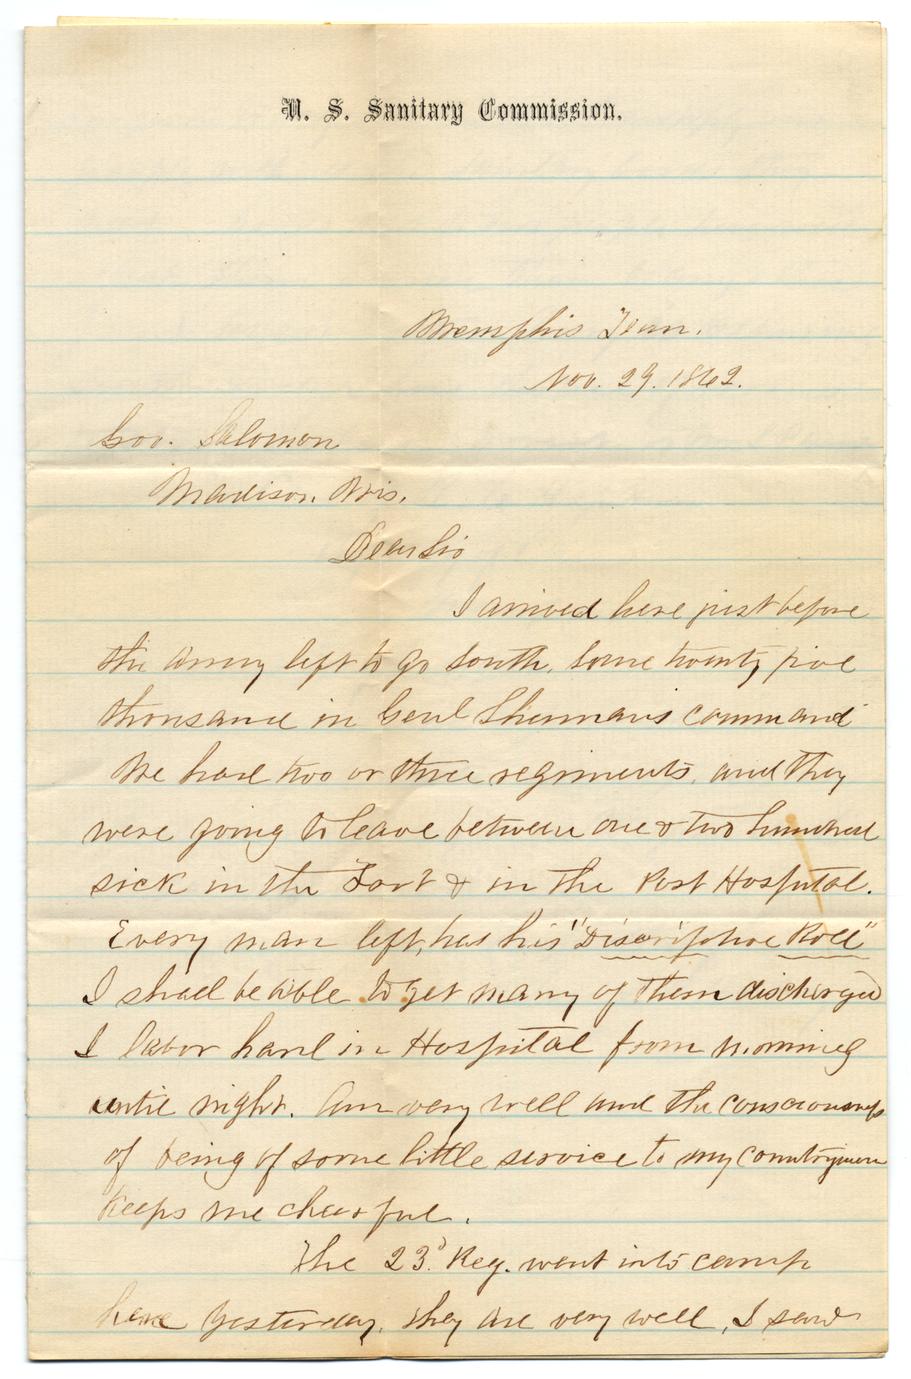 U. S. Sanitary Commission.
Memphis Tenn.
Nov. 29. 1862.
Gov. Salomon
Madison. Wis.
Dear Sir
I arrived here just before
the army left to go South, some twenty five
thousand in Genl Shermans command
We had two or three regiments, and they
were going to leave between one & two hundred
sick in the Fort & in the Post Hospital.
Every man left, has his "Discriptive Roll"
I shall be able to get many of them discharged
I labor hard in Hospital from morning
until night. Am very well and the consciousness
of being of some little service to my countrymen
keeps me cheerful.
The 23d Reg. went into camp
here yesterday. They are very well, I saw